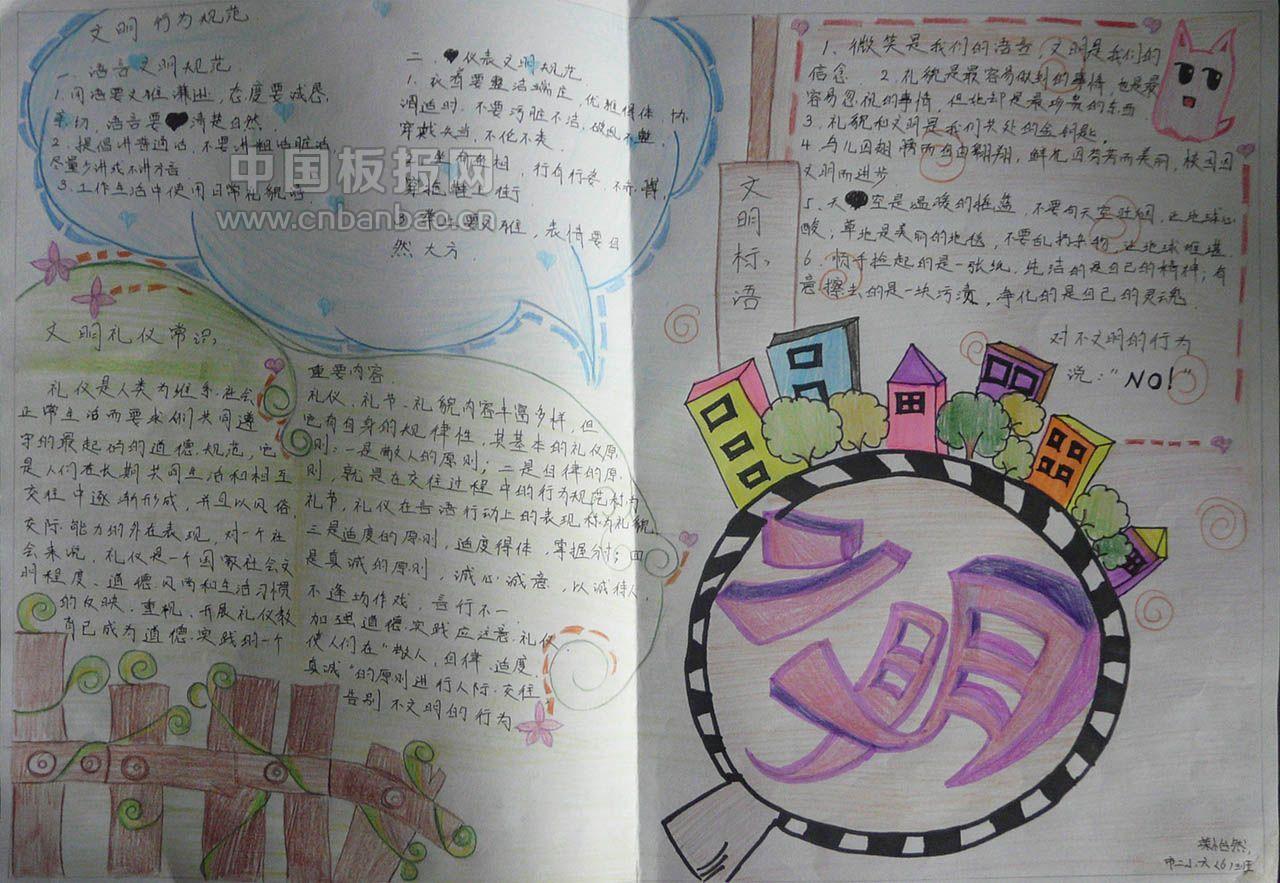 文明 行为规范
一、语言文明规范
1.用语要文雅 谦逊,态度要诚恳、
亲切,语言要清楚自然
2.提倡讲普通话,不要讲粗话脏话
尽量少讲或不讲方言
3.工作生活中使用日常礼貌语
二、仪表文明规范
1.衣着要整洁端庄,优雅得体 协
调适时.不要污脏不洁.破损不整.
穿戴失当.不伦不类.
行有行姿,不
3 要文雅,表情要自
然大方.
中国板报网
www.cnbanbao.cn
文明礼仪常识:
礼仪是人类为维系社会
正常生活而要求人们共同遵
守的最起码的道德规范,它
是人们在长期共同生活和相互
交往中逐渐形成,并且以风俗
交际能力的外在表现,对一个社
会来说,礼仪是一个国家社会文
明程度、道德风尚和生活习惯
的反映.重视、开展礼仪教
育已成为道德实践的一个
重要内容.
礼仪、礼节、礼貌内容丰富多样,但
它有自身的规律性,其基本的礼仪原
则:一是敬人的原则;二是自律的原
则,就是在交往过程中的行为规范称为
礼节,礼仪在言语行动上的表现称为礼貌.
三是适度的原则,适度得体,掌握分寸;四
是真诚的原则,诚心诚意,以诚待人,
不逢场作戏,言行不一.
加强道德实践应注意礼仪
使人们在"敬人、自律、适度、
真诚"的原则进行人际交往
告别不文明的行为
文明标语
1、微笑是我们的语言,文明是我们的
信念 2、礼貌是最容易做到的事情,也是最
容易忽视的事情,但她却是最珍贵的东西
3、礼貌和文明是我们共处的金钥匙
4、鸟儿因翅膀而自由翱翔,鲜花因芬芳而美丽,校园因
文明而进步
5、天空是温暖的摇篮,不要向天空吐烟,让地球心
酸,草地是美丽的地毯,不要乱扔杂物,让地球难堪.
6、顺手捡起的是一张纸,纯洁的是自己的精神;有
意擦去的是一块污渍,净化的是自己的灵魂
对不文明的行为
说:"NO!"
文明
市二小.六〈6〉班